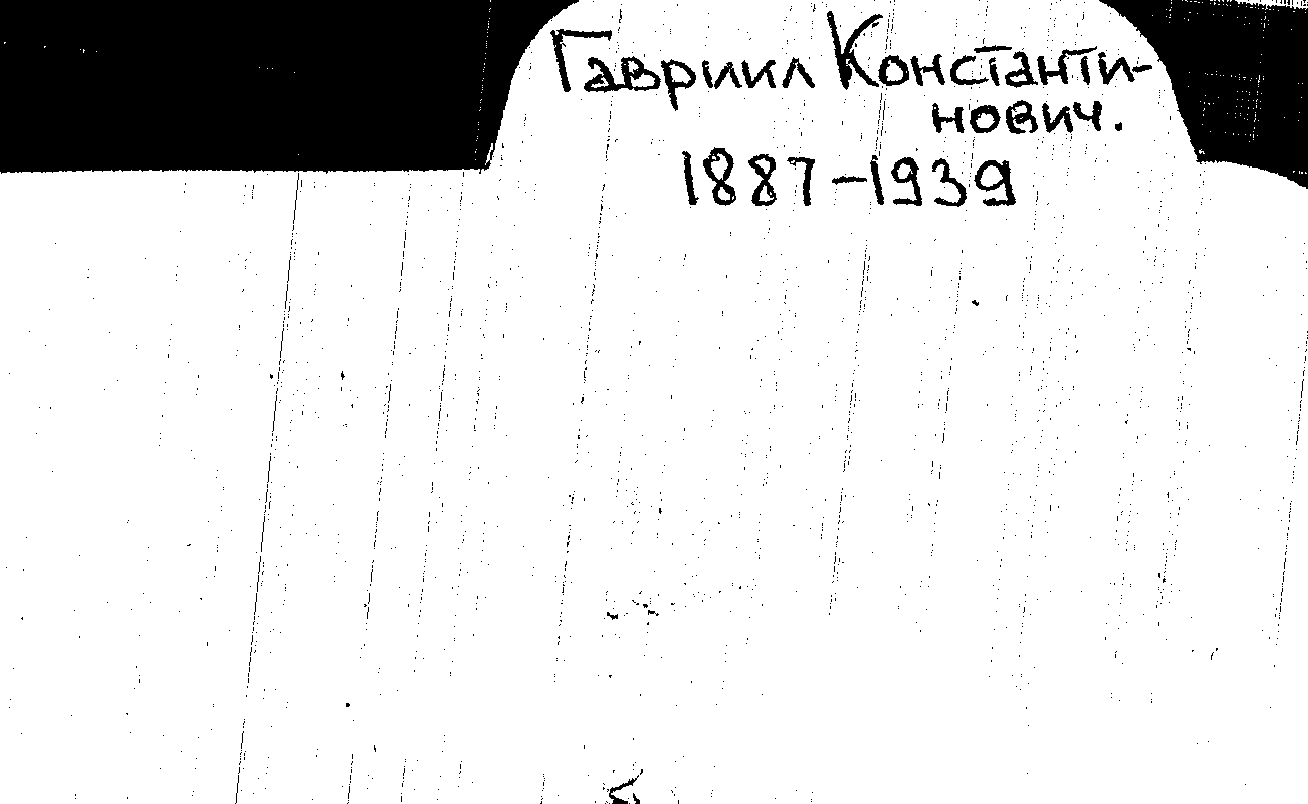 Гавриил Константи-
нович.
1887-1939